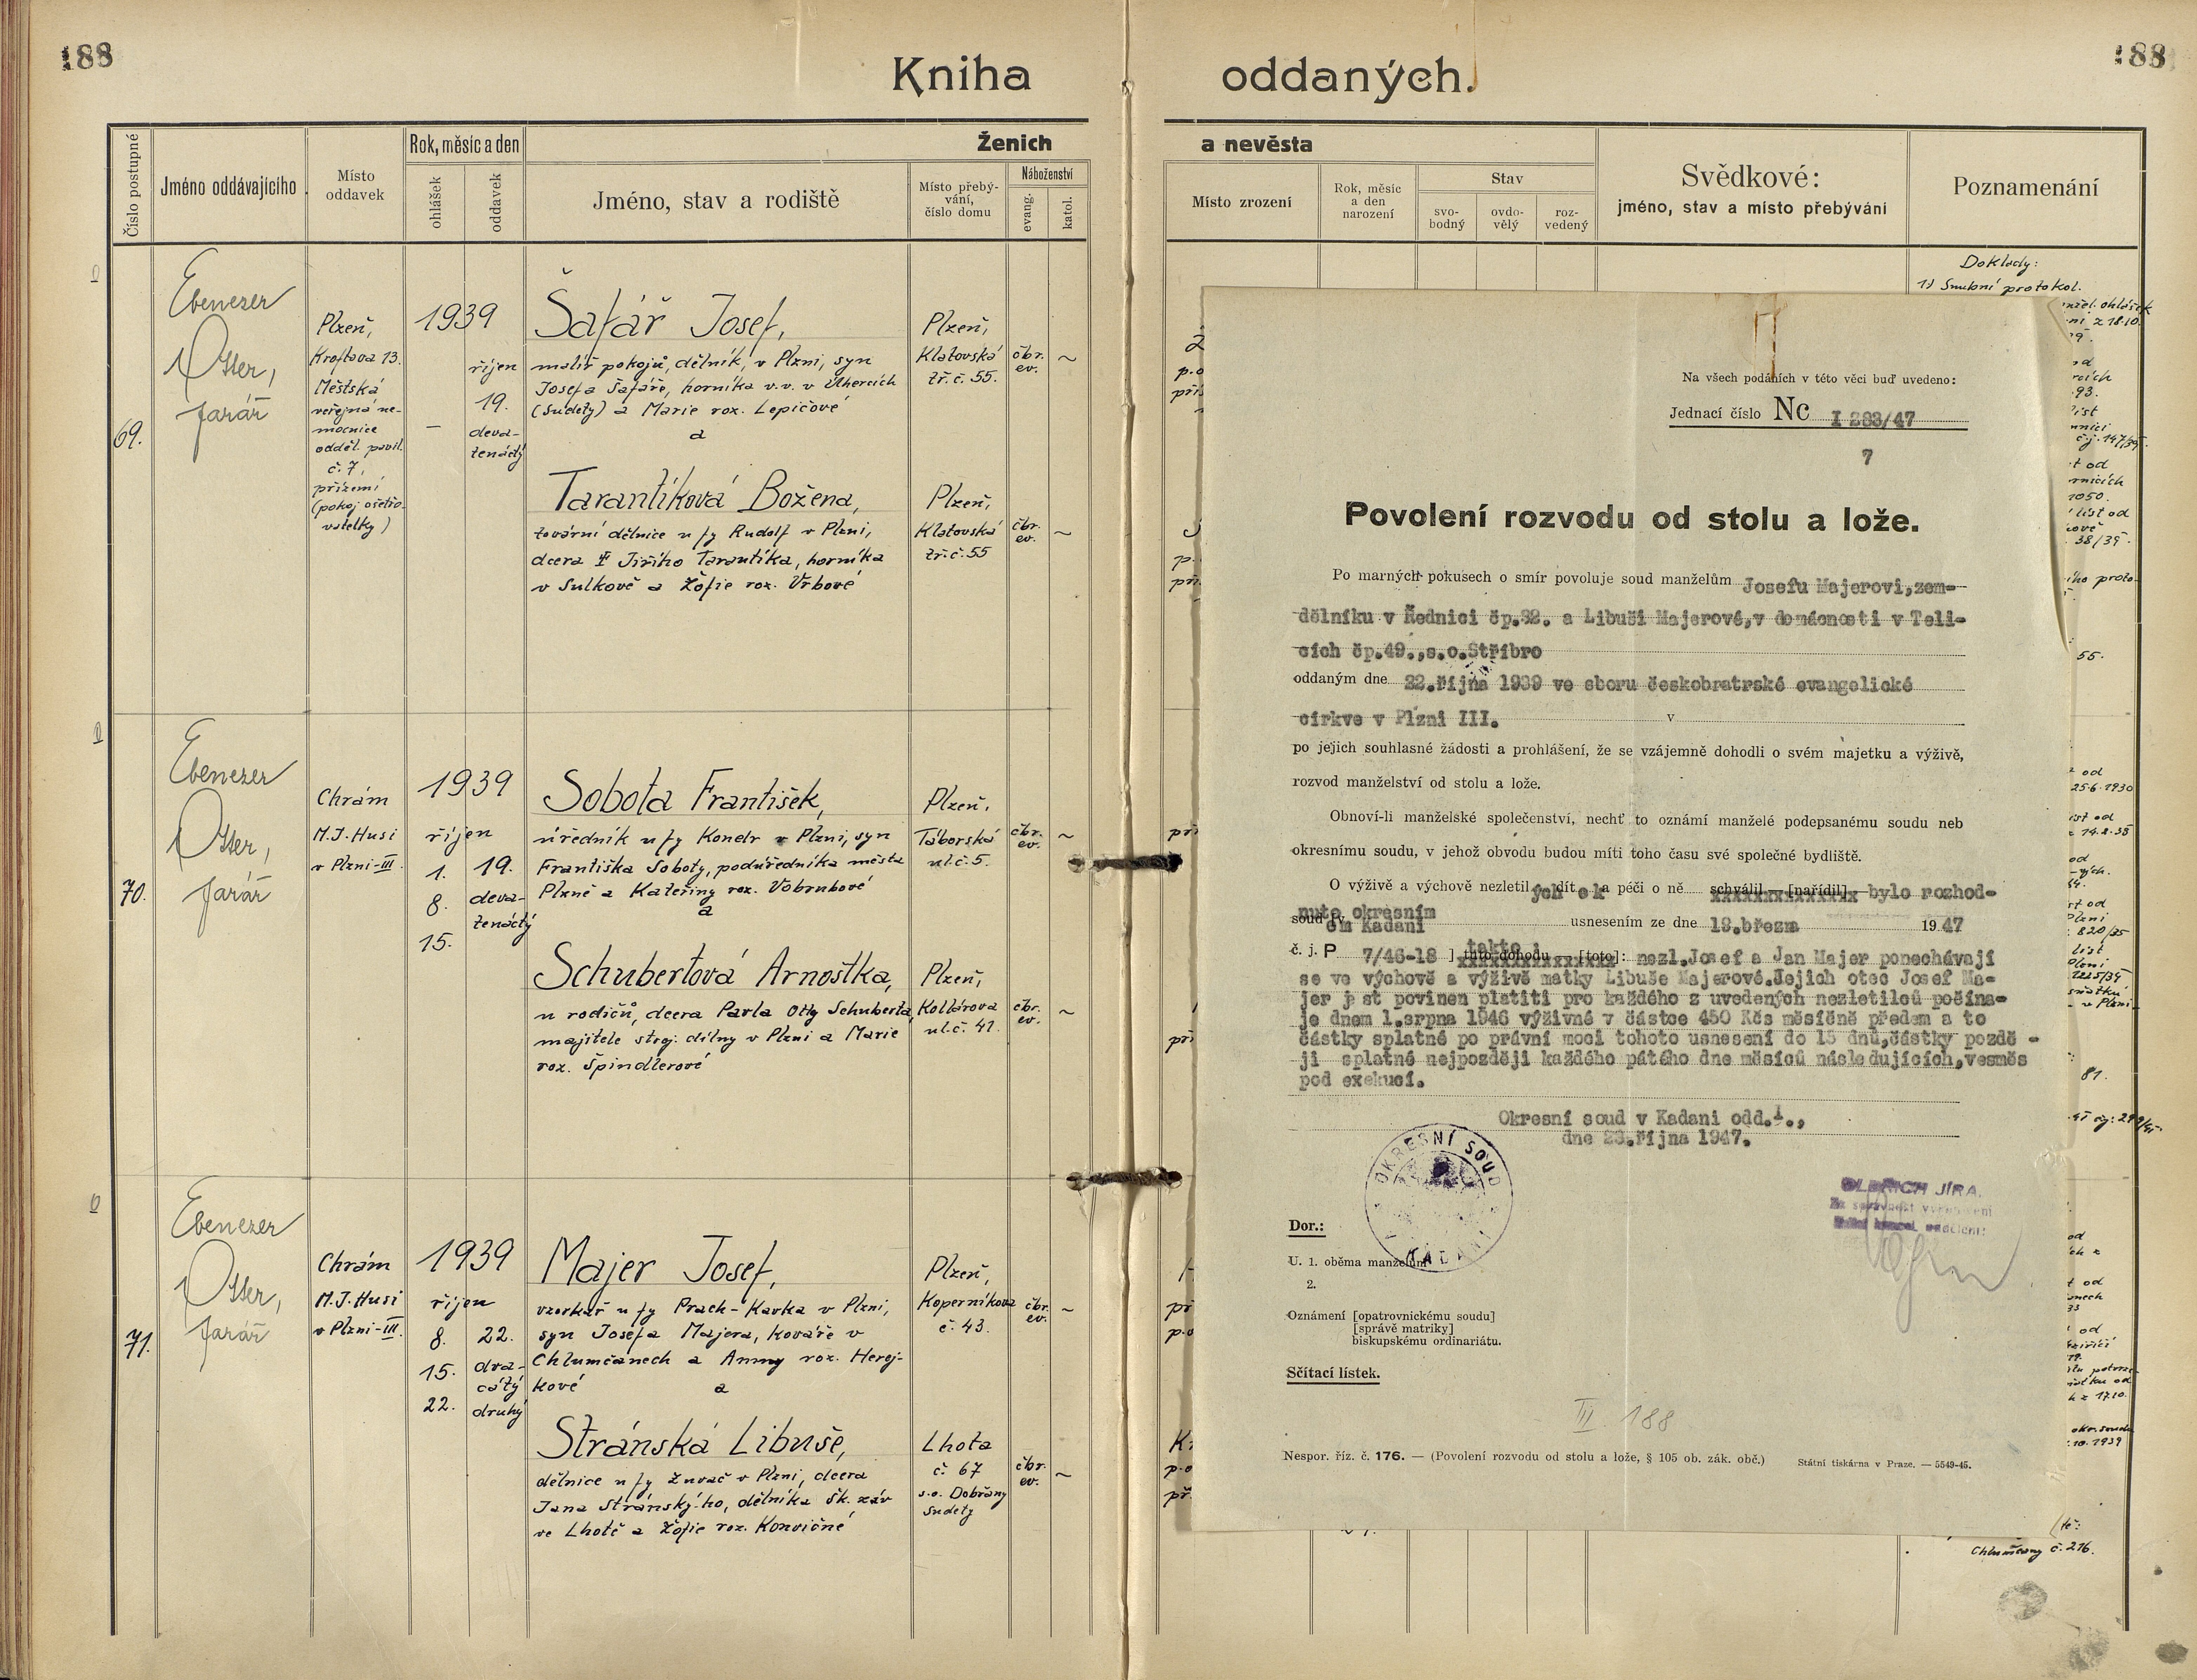 188
188
Kniha oddaných.
Číslo postupné
Jméno oddávajícího
Místo oddavek
Rok, měsíc a den
ohlášek
oddavek
Ženich
Jméno, stav a rodiště
Místo přebývání, číslo domu
Náboženství
evang.
katol.
a nevěsta
Místo zrození
Rok, měsíc a den narození
Stav
svobodný
ovdovělý
rozvedený
Svědkové:
jméno, stav a místo přebývání
Poznamenání
69.
Ebenezer
Otter,
farář
Plzeň,
Kroftova 13.
Městská
veřejná ne-
mocnice
odděl. pavil.
č. 7,
přízemí
(pokoj ošetřo-
vatelky)
1939
–
říjen
19.
deva-
tenáctý
Šafář Josef,
malíř pokojů, dělník, v Plzni, syn
Josefa Šafáře, horníka v.v. v Úhercích
(Sudety) a Marie roz. Lepičové
a
Plzeň,
Klatovská
tř. č. 55.
čbr.
ev.
~
Tarantíková Božena,
tovární dělnice u fy Rudolf v Plzni,
dcera † Jiřího Tarantíka, horníka
v Sulkově a Žofie roz. Vrbové
Plzeň,
Klatovská
tř. č. 55
čbr.
ev.
~
70.
Ebenezer
Otter,
farář
Chrám
M.J. Husi
v Plzni-III.
1939
říjen
1.
8.
15.
19.
deva-
tenáctý
Sobota František,
úředník u fy Konedr v Plzni, syn
Františka Soboty, podúředníka města
Plzně a Kateřiny roz. Vobrubové
a
Plzeň,
Táborská
ul. č. 5.
čbr.
ev.
~
Schubertová Arnoštka,
u rodičů, dcera Pavla Otty Schuberta,
majitele stroj. dílny v Plzni a Marie
roz. Špindlerové
Plzeň,
Kollárova
ul. č. 41.
čbr.
ev.
~
71.
Ebenezer
Otter,
farář
Chrám
M.J. Husi
v Plzni-III.
1939
říjen
8.
15.
22.
22.
dva-
cátý
druhý
Majer Josef,
vzorkař u fy Prach-Kavka v Plzni,
syn Josefa Majera, kováře v
Chlumčanech a Anny roz. Herej-
kové
a
Plzeň,
Koperníkova
č. 43.
čbr.
ev.
~
Stránská Libuše,
dělnice u fy Žuvač v Plzni, dcera
Jana Stránského, dělníka Šk. záv
ve Lhotě a Žofie roz. Konvičné
Lhota
č. 67
s.o. Dobřany
Sudety
čbr.
ev.
~
Doklady:
1) Snubní protokol.
Na všech podáních v této věci buď uvedeno:
Jednací číslo Nc I 283/47
7
Povolení rozvodu od stolu a lože.
Po marných pokusech o smír povoluje soud manželům Josefu Majerovi,zem-
dělníku v Řednici čp.32. a Libuši Majerové,v domácnosti v Teli-
cích čp.49.,s.o.Stříbro
oddaným dne 22.října 1939 ve sboru českobratrské evangelické
církve v Plzni III. v
po jejich souhlasné žádosti a prohlášení, že se vzájemně dohodli o svém majetku a výživě,
rozvod manželství od stolu a lože.
Obnoví-li manželské společenství, nechť to oznámí manželé podepsanému soudu neb
okresnímu soudu, v jehož obvodu budou míti toho času své společné bydliště.
O výživě a výchově nezletilých dítek a péči o ně schválil — [nařídil] bylo rozhod-
nuto okresním
soudem Kadani usnesením ze dne 18.březm 1947
č. j. P 7/46-18 ] takto : tuto dohodu — [toto]: nezl.Josef a Jan Majer ponechávají
se ve výchově a výživě matky Libuše Majerové.Jejich otec Josef Ma-
jer j st povinen platiti pro každého z uvedených nezletilců počína-
je dnem 1.srpna 1946 výživné v částce 450 Kčs měsíčně předem a to
částky splatné po právní moci tohoto usnesení do 15 dnů,částky pozdě -
ji splatné nejpozději každého pátého dne měsíců následujících,vesměs
pod exekucí.
Okresní soud v Kadani odd.I.,
dne 23.října 1947.
OKRESNÍ SOUD
KADANI
OLDŘICH JÍRA.
Za správnost vyhotovení
Dor.:
U. 1. oběma manželům
2.
Oznámení [opatrovnickému soudu]
[správě matriky]
biskupskému ordinariátu.
Sčítací lístek.
III. 188
Nespor. říz. č. 176. — (Povolení rozvodu od stolu a lože, § 105 ob. zák. obč.)
Státní tiskárna v Praze. — 5549-45.
Chlumčany č. 216.